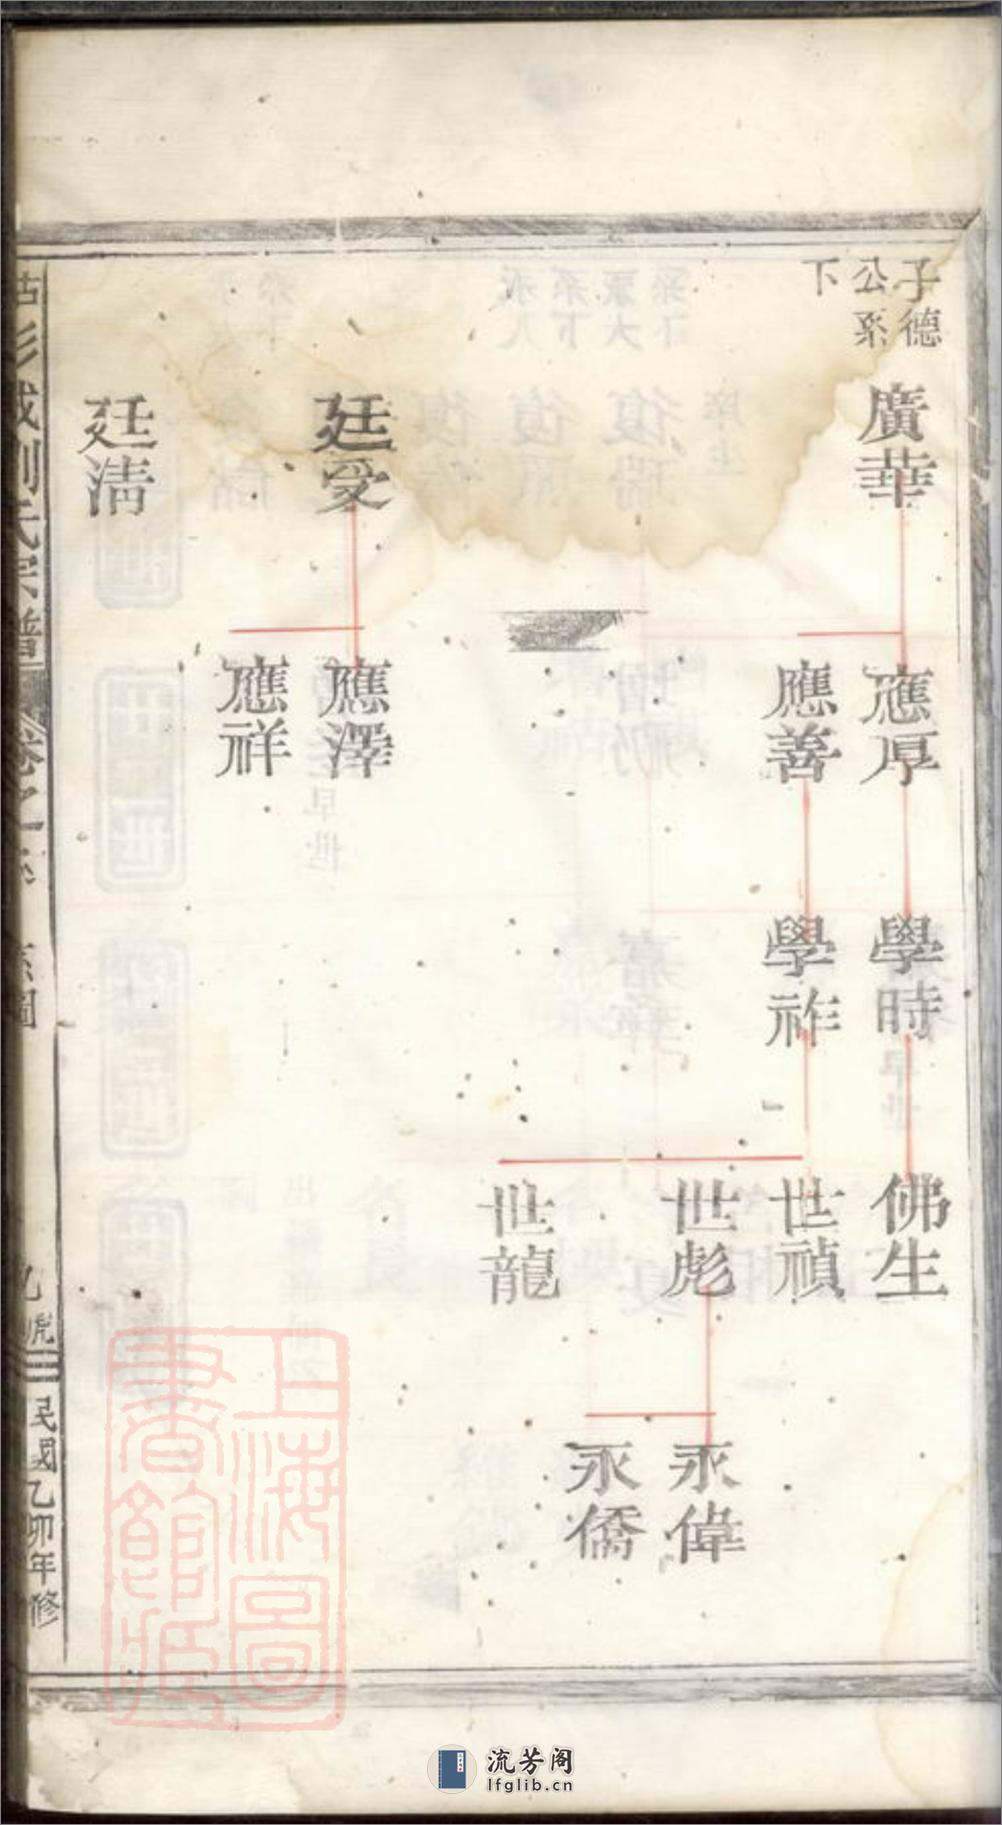 子德
公系
下
廣華
應厚
學時
佛生
應善
學祚
世禎
世彪
永偉
永僑
世龍
廷受
應澤
應祥
廷淸
彭城劉氏宗譜
卷之
系圖
民國乙卯年修
上海圖
書館藏
流芳阁
lfglib.cn